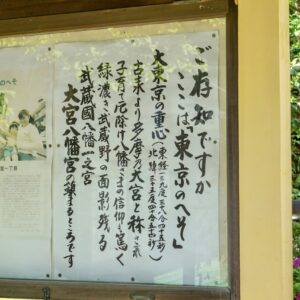 ご存知ですか
ここは「東京のへそ」
大東京の重心（東経一三九度三十八分四十五秒
北緯三十五度四十分五十四秒）
古来より多摩の大宮と称され
子育て厄除け八幡さまの信仰も篤く
緑濃き武蔵野の面影残る
武蔵國八幡一之宮
大宮八幡宮の鎮まるところです
のへそ